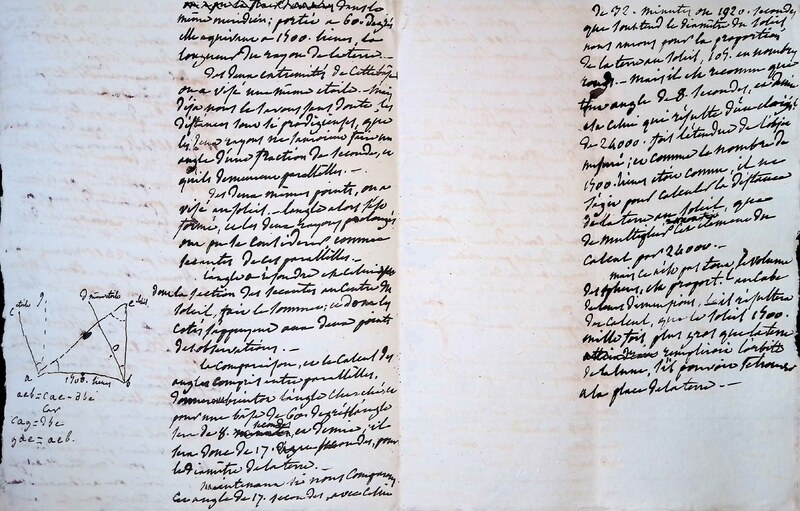 même méridien; portée à 60. degrés
elle équivaut à 1500. lieues, la
longueur du rayon de la terre. —
Des deux extrémités de cette base
on a visé une même étoile. — Mais
déjà nous le savons sans doute, les
distances sont si prodigieuses, que
les deux rayons ne sauraient faire un
angle d'une fraction de seconde, et
qu'ils demeurent parallèles. —
Des deux mêmes points, on a
visé au soleil. — L'angle alors s'est
formé, et les deux rayons prolongés
ont pu se considérer comme
sécantes de ces parallèles. —
L'angle à résoudre est celui
dont la section des sécantes au centre du
soleil, fait le sommet, et dont les
côtés s'appuyent aux deux points
d'observations. —
La comparaison, et le calcul des
angles compris entre parallèles,
donneront l'angle cherché, et
pour une base de 60. degrés l'angle
sera de 8. secondes, et demie, il
sera donc de 17. secondes, pour
le diamètre de la terre. —
Maintenant si nous comparons
cet angle de 17. secondes, avec celui
étoile
étoile
soleil
a
b
1500. lieues
aeb = cae - dbe
car
cag = dbe
gae = aeb.
de 32. minutes ou 1920. secondes
que soutend le diamètre du soleil
nous aurons pour la proportion
de la terre au soleil, 109. en nombre
rond. — Mais il est reconnu que
tout angle de 8. secondes, et demie
est celui qui résulte d'un éloignt
de 24000. fois l'étendue de l'objet
mesuré; et comme le nombre de
1500. lieues est connu, il ne
s'agit pour calculer la distance
de la terre au soleil, que
de multiplier cet élément du
calcul par 24000. —
Mais ce n'est pas tout, le volume
des sphères, est proport. au cube
de leurs dimensions. Il en résultera
du calcul, que le soleil 1300.
mille fois, plus gros que la terre
remplirait l'orbite
de la lune, s'il pouvait se trouver
à la place de la terre. —